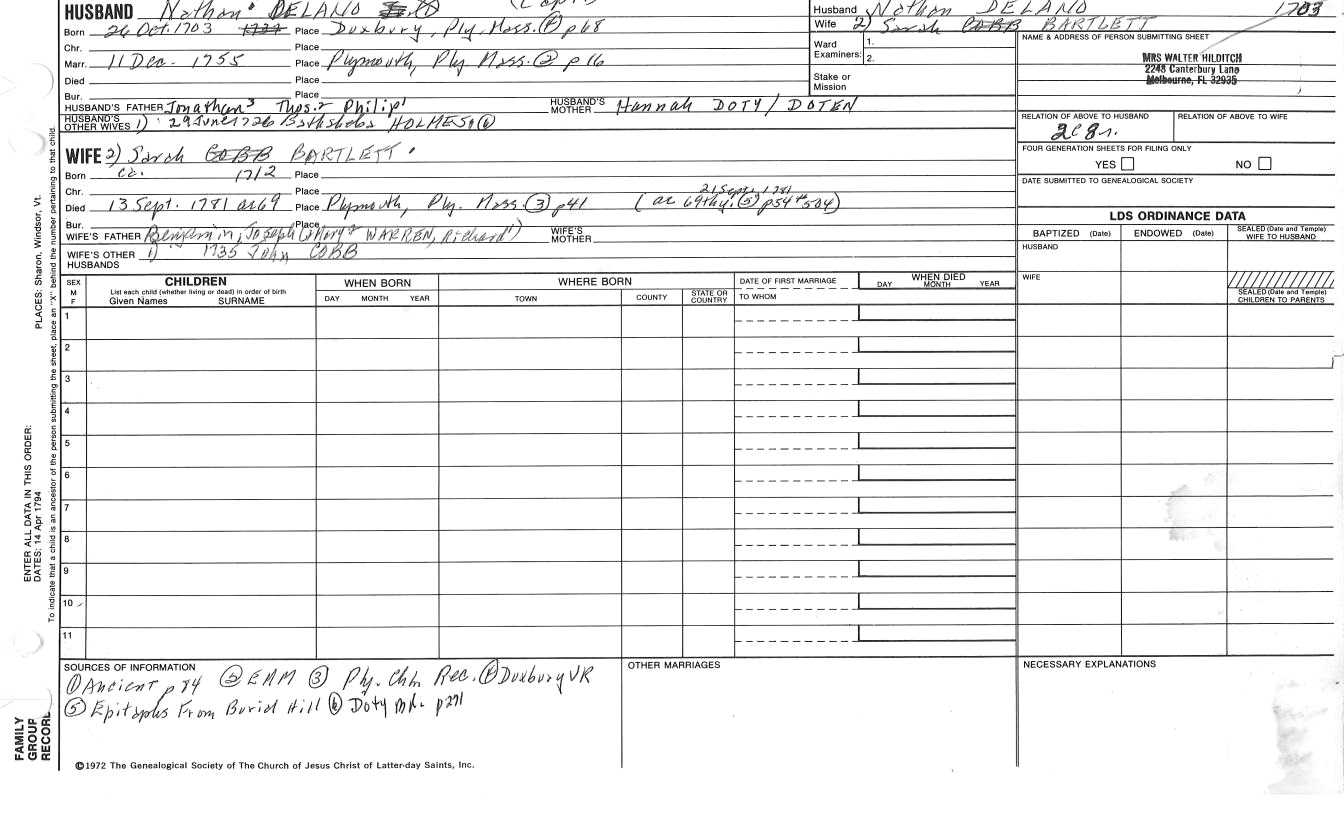 HUSBAND Nathan DELANO
Born 26 Oct. 1703 Place Duxbury, Ply. Mass. ④ p68
Chr. Place
Marr. 11 Dec. 1755 Place Plymouth, Ply Mass. ② p 16
Died Place
Bur. Place
HUSBAND'S FATHER Jonathan³ Thos.² Philip¹ HUSBAND'S MOTHER Hannah DOTY / DOTEN
HUSBAND'S OTHER WIVES 1) 29 June 1726 Bathsheba HOLMES ⑥
WIFE 2) Sarah COBB BARTLETT
Born ca. 1712 Place
Chr. Place
Died 13 Sept. 1781 ae 69 Place Plymouth, Ply. Mass. ③ p41 (ae 69thy. ⑤ p54 #504)
21 Sept. 1781
Bur. Place
WIFE'S FATHER Benjamin, Joseph (Mary² WARREN, Richard¹) WIFE'S MOTHER
WIFE'S OTHER HUSBANDS 1) 1735 John COBB
Husband Nathan DELANO 1703
Wife 2) Sarah COBB BARTLETT
Ward Examiners: 1.
2.
Stake or Mission
NAME & ADDRESS OF PERSON SUBMITTING SHEET
MRS WALTER HILDITCH
2248 Canterbury Lane
Melbourne, FL 32935
RELATION OF ABOVE TO HUSBAND RELATION OF ABOVE TO WIFE
2C8r.
FOUR GENERATION SHEETS FOR FILING ONLY
YES NO
DATE SUBMITTED TO GENEALOGICAL SOCIETY
LDS ORDINANCE DATA
BAPTIZED (Date) ENDOWED (Date) SEALED (Date and Temple) WIFE TO HUSBAND
HUSBAND
WIFE
SEALED (Date and Temple) CHILDREN TO PARENTS
SEX M F
CHILDREN
List each child (whether living or dead) in order of birth
Given Names SURNAME
WHEN BORN
DAY MONTH YEAR
WHERE BORN
TOWN COUNTY STATE OR COUNTRY
DATE OF FIRST MARRIAGE
TO WHOM
WHEN DIED
DAY MONTH YEAR
1
2
3
4
5
6
7
8
9
10
11
SOURCES OF INFORMATION
① Ancient p 84 ② EAM ③ Ply. Chh. Rec. ④ Duxbury VR
⑤ Epitaphs From Burial Hill ⑥ Doty p271
OTHER MARRIAGES
NECESSARY EXPLANATIONS
©1972 The Genealogical Society of The Church of Jesus Christ of Latter-day Saints, Inc.
FAMILY GROUP RECORD
ENTER ALL DATA IN THIS ORDER:
DATES: 14 Apr 1794
PLACES: Sharon, Windsor, Vt.
To indicate that a child is an ancestor of the person submitting the sheet, place an "X" behind the number pertaining to that child.